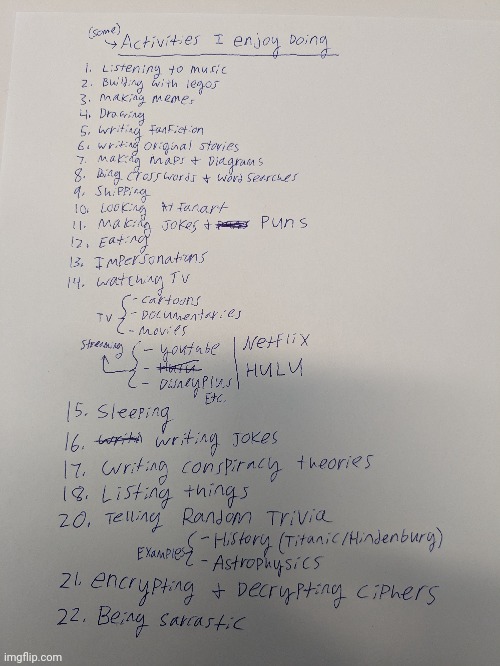 (some)
→ Activities I enjoy Doing
1. Listening to music
2. Building with legos
3. making memes
4. Drawing
5. writing fanfiction
6. writing original stories
7. making maps + Diagrams
8. Doing crosswords + wordsearches
9. Shipping
10. Looking At fanart
11. making jokes + PUNS
12. Eating
13. Impersonations
14. watching TV
TV { - cartoons
- Documentaries
- movies
Streaming { - youtube | Netflix
- Hulu | HULU
- DisneyPlus
Etc.
15. Sleeping
16. writing jokes
17. writing conspiracy theories
18. Listing things
20. Telling Random Trivia
Examples { - History (Titanic/Hindenburg)
- Astrophysics
21. encrypting + Decrypting ciphers
22. Being sarcastic
imgflip.com